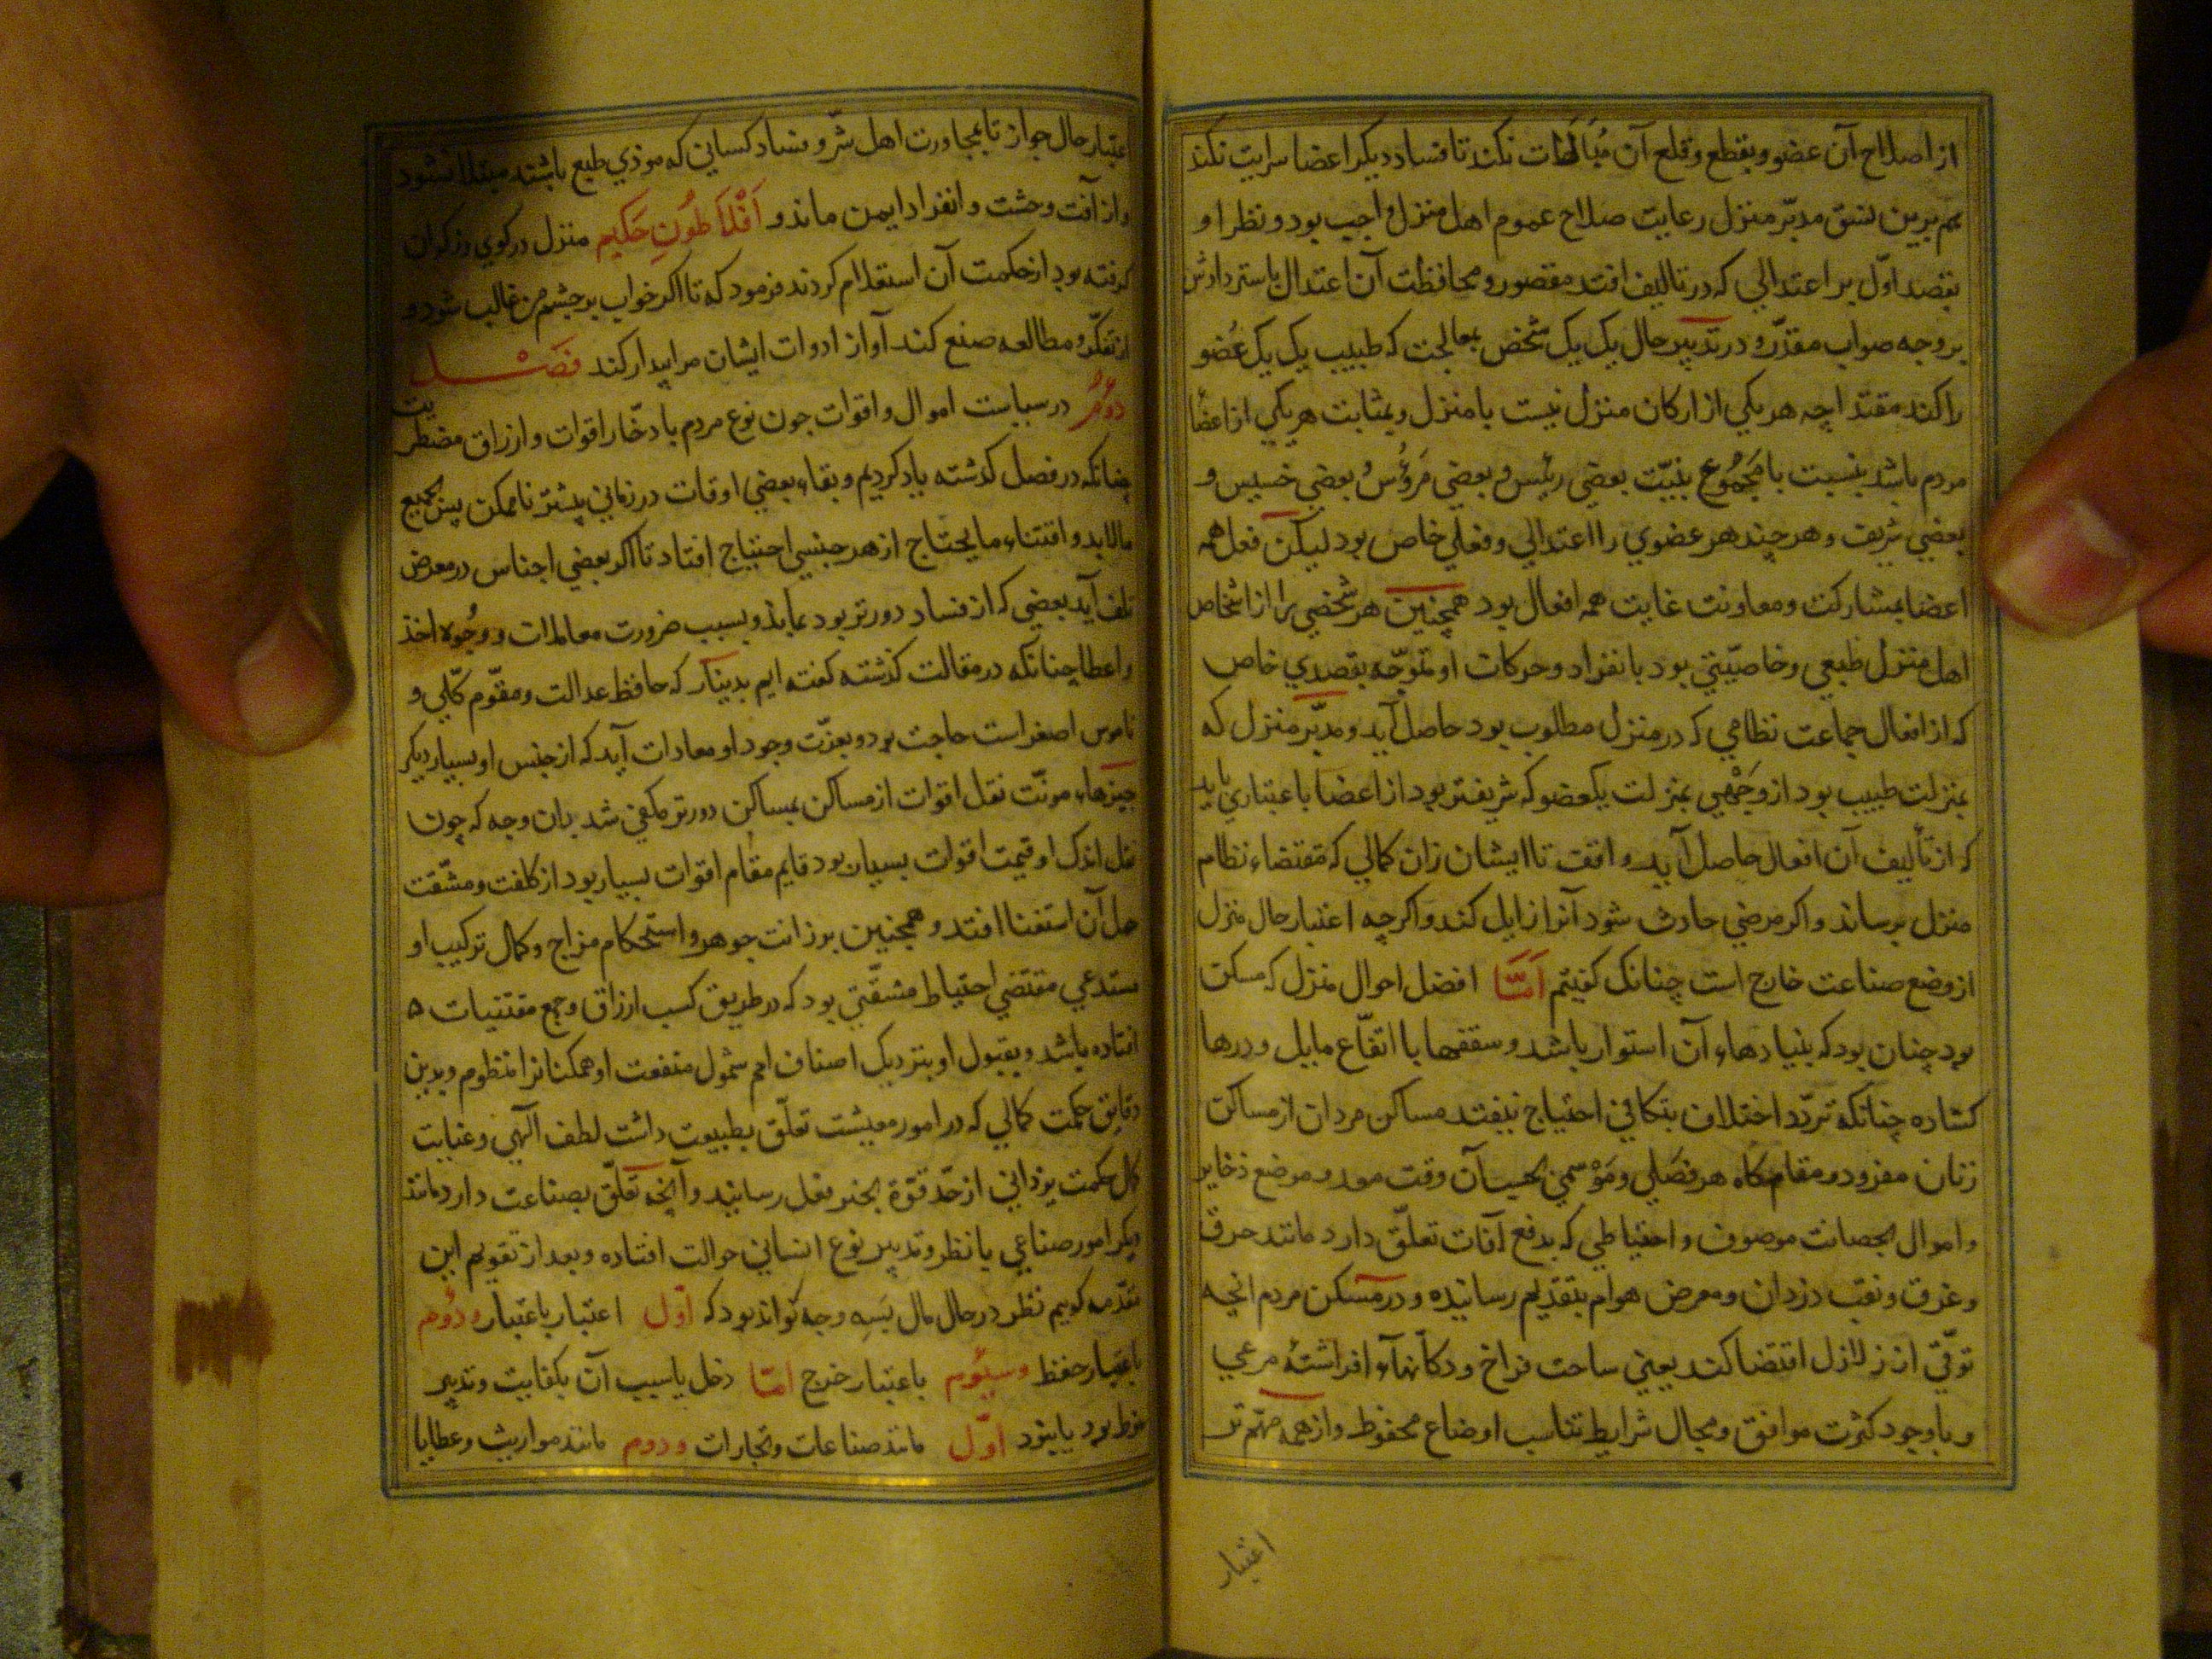 از اصلاح آن عضو و بقطع و قلع آن مُبَالَات نکند تا فساد دیکر اعضا سرایت نکند
هم برین نسق مدبّر منزل رعایت صلاح عموم اهل منزل واجب بود و نظر او
بقصد اوّل بر اعتدالی که در تالیف افتد مقصور و محافظت آن اعتدال یا استردادش
بر وجه صواب مقدّر و در تدبیر حال یک یک شخص بمعالجت که طبیب یک یک عُضو
را کند مقتدا چه هر یکی از ارکان منزل نیست با منزل و بمثابت هر یکی از اعضا
مردم باشد بنسبت با مَجمُوع بنیت بعضی رئیس و بعضی مَرؤُس و بعضی خسیس و
بعضی شریف و هر چند هر عضوی را اعتدالی و فعلی خاص بود لیکن فعل همه
اعضا بمشارکت و معاونت غایت همه افعال بود همچنین هر شخصی را از اشخاص
اهل منزل طبعی و خاصیّتی بود بانفراد و حرکات او متوجّه بقصدی خاص
که از افعال جماعت نظامی که در منزل مطلوب بود حاصل آید و مدبّر منزل که
بمنزلت طبیب بود از وَجهی بمنزلت یکعضو که شریفتر بود از اعضا باعتباری باید
که از تألیف آن افعال حاصل آید واقف تا ایشان زان کمالی که مقتضاء نظام
منزل برساند و اکر مرضی حادث شود آنرا زایل کند و اکرچه اعتبار حال منزل
از وضع صناعت خارج است چنانک کفیتم اَمّا افضل احوال منزل که مسکن
بود چنان بود که بنیادهاء آن استوار باشد و سقفها با اتفّاع مایل و درها
کشاده چنانکه تردّد اختلاف بتکافی احتیاج نیفتد مساکن مردان از مساکن
زنان مفرود و مقامکاه هر فصَلی و مَوْسمی بحسب آن وقت معد و موضع ذخایر
و اموال بحصانت موصوف و احتیاطی که بدفع آفات تعلّق دارد مانند حرق
و غرق و نقب دزدان و معرض هوام بتقدیم رسانیده و در مسکن مردم انچه
توقّی از زلازل اقتضا کند یعنی ساحت فراخ و دکانهاء افراشته مرعی
و با وجود کثرت موافق و مجال شرایط تناسب اوضاع محفوظ و از همه مهمّ تر
اعتبار
اعتبار حال جوار تا بمجاورت اهل شرّ و فساد کسانی که موذی طبع باشند مبتلا نشود
و از آفت وحشت و انفراد ایمن ماند و اَفْلَاطُونِ حَکیم منزل در کوی زرکران
کرفته بود از حکمت آن استعلام کردند فرمود که تا اکر خواب بر چشم من غالب شود و
از تفکّر و مطالعه منع کند آواز ادوات ایشان مرا بیدار کند فصْــــل
دوُمْ در سیاست اموال و اقوات چون نوع مردم بادّخار اقوات و ارزاق مضطر
یت
چنانکه در فصل کذشته یاد کردیم و بقاء بعضی اوقات در زمانی بیشتر ناممکن پس بجمع
مالابد و اقتناء مایحتاج از هر جنسی احتیاج افتاد تا اکر بعضی اجناس در معرض
تلف آید بعضی که از فساد دورتر بود بماند و بسبب ضرورت معاملات و وجُوه اخذ
و اعطا چنانکه در مقالت کذشته کفته ایم بدینار که حافظ عدالت و مقوّم کلّی و
ناموس اصغر است حاجت بود و بعزّت وجود او معادات آید که از جنس او بسیار دیکر
چیزها مونّت نقل اقوات از مساکن بمساکن دورتر مکفی شد بدان وجه که چون
نقل اندک او قیمت اقوات بسیار بود قایم مقام اقوات بسیار بود از کلفت و مشقّت
حمل آن استغنا افتد و همچنین برزانت جوهر و استحکام مزاج و کمال ترکیب او
مستدعی مقتضی احتیاط مشقّتی بود که در طریق کسب ارزاق و جمع مقتنیات
افتاده باشد و بقبول او بنزدیک اصناف امم شمول منفعت او همکنانرا منظوم و بدین
دقایق حکمت کمالی که در امور معیشت تعلّق بطبیعت داشت لطف الهی و عنایت
کمال حکمت یزدانی از حدّ قوّة بحیز فعل رسانید و آنچه تعلّق بصناعت دارد مانند
دیکر امور صناعی با نظر و تدبیر نوع انسانی حوالت افتاده و بعد از تقویم این
مقدّمه کوییم نظر در حال مال بسه وجه تواند بود که اوّل اعتبار باعتبار و دُوم
باعتبار حفظ و سیُوم باعتبار خرج امّا دخل یا سبب آن بکفایت و تدبیر
منوط بود یا نبود اوّل مانند صناعات و تجارات و دوم مانند مواریث و عطایا